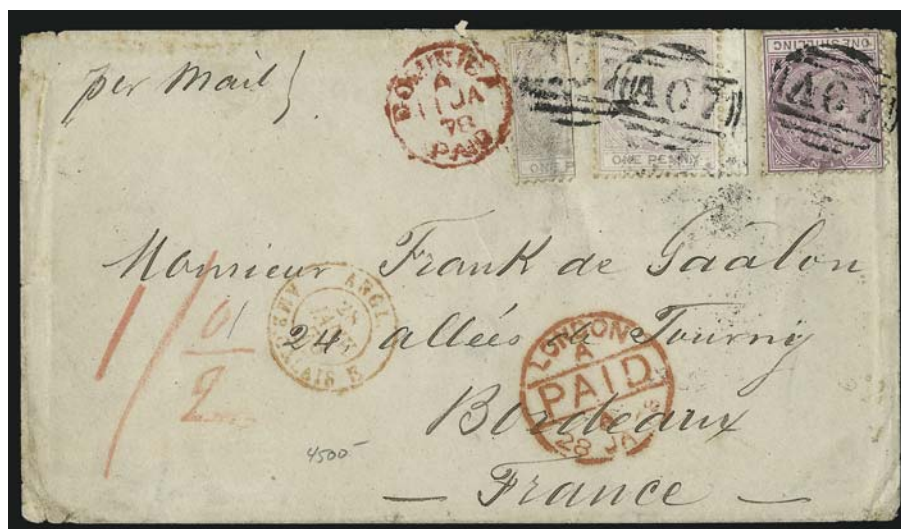 per Mail
DOMINICA
A
11 JA
78
PAID
ONE P
ONE PENNY
A07
ONE SHILLING
A07
Monsieur Frank de Gaalon
24 allées de Tourny
Bordeaux
France
1/
0/
2
ANGL
28
LONDON
A
PAID
28 JA
4500